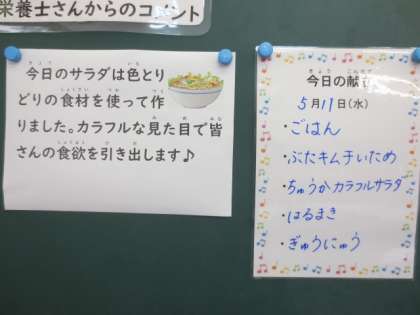 栄養士さんからのコメント
今日のサラダは色とり
どりの食材を使って作
りました。カラフルな見た目で皆
さんの食欲を引き出します♪
今日の献立
5月11日(水)
・ごはん
・ぶたキムチいため
・ちゅうかカラフルサラダ
・はるまき
・ぎゅうにゅう